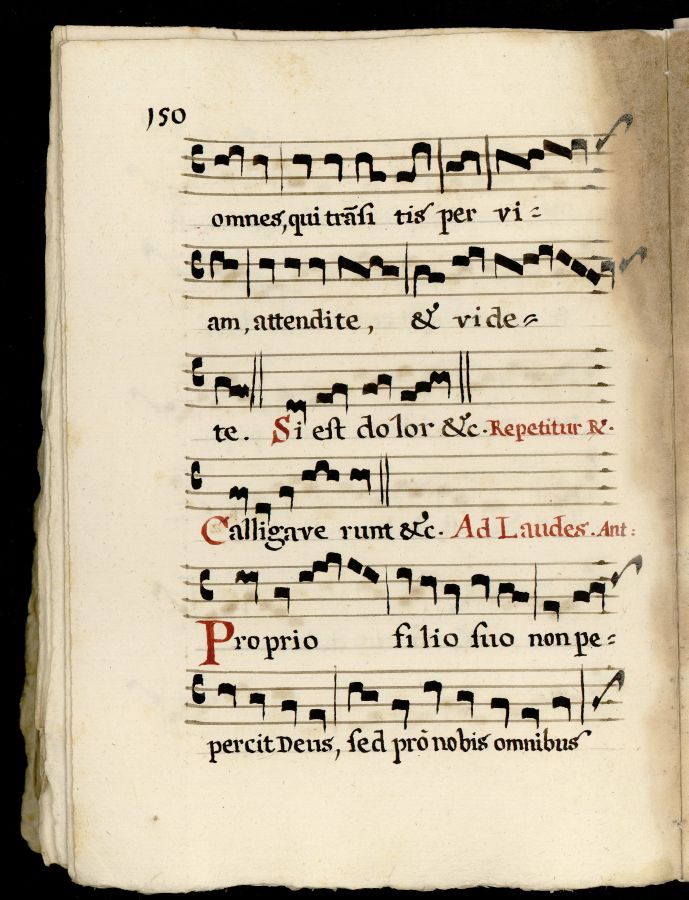 150
omnes, qui trãsi tis per vi=
am, attendite, & vide=
te. Si est dolor &c. Repetitur ℟.
Calligave runt &c. Ad Laudes. Ant:
Proprio filio suo non pe=
percit Deus, sed prõ nobis omnibus